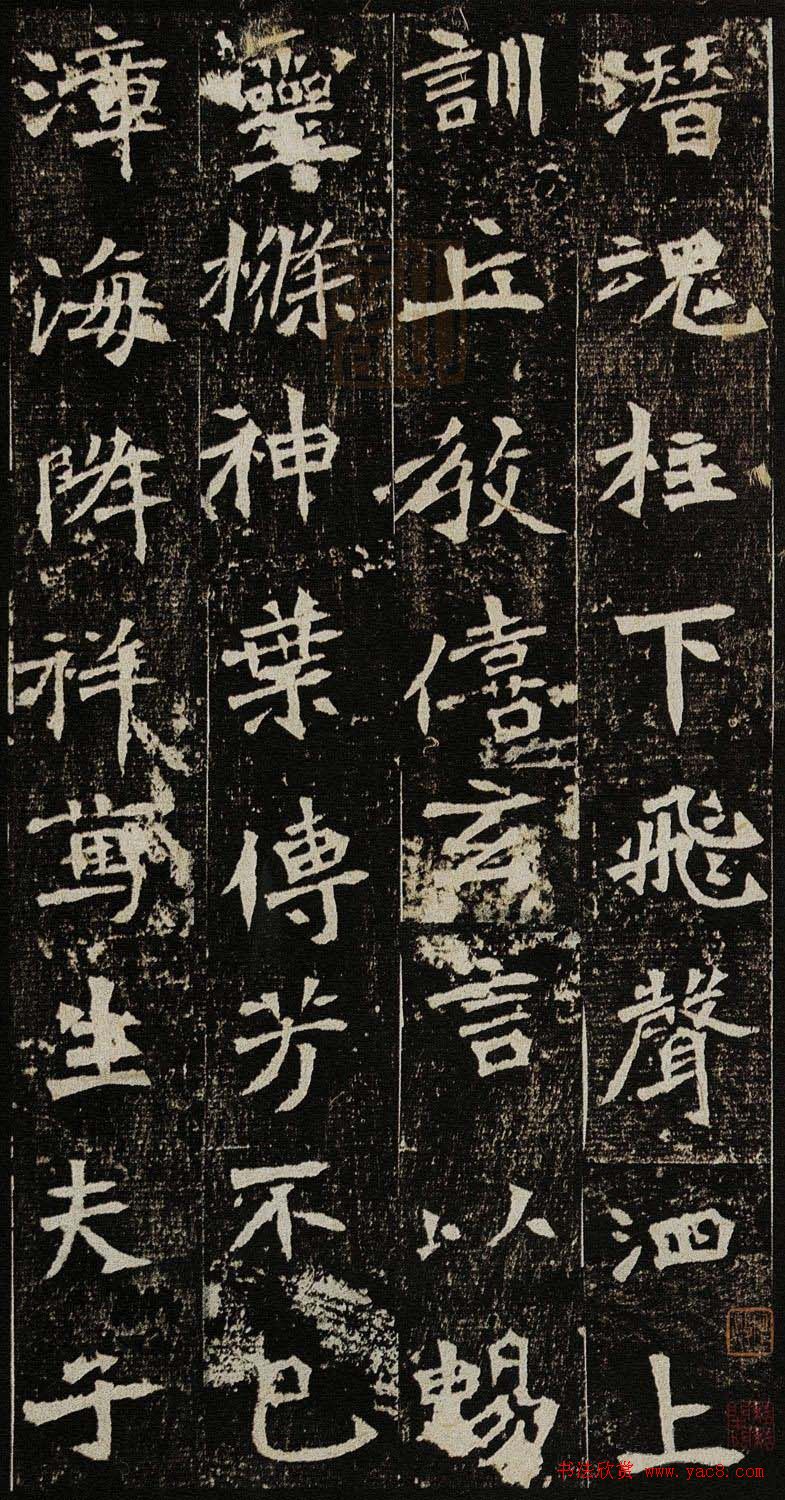 潛魂柱下飛聲泗上
訓丘教僖玄言以暢
靈樤神葉傳芳不已
漳海降祥篤生夫子
书法欣赏 www.yac8.com